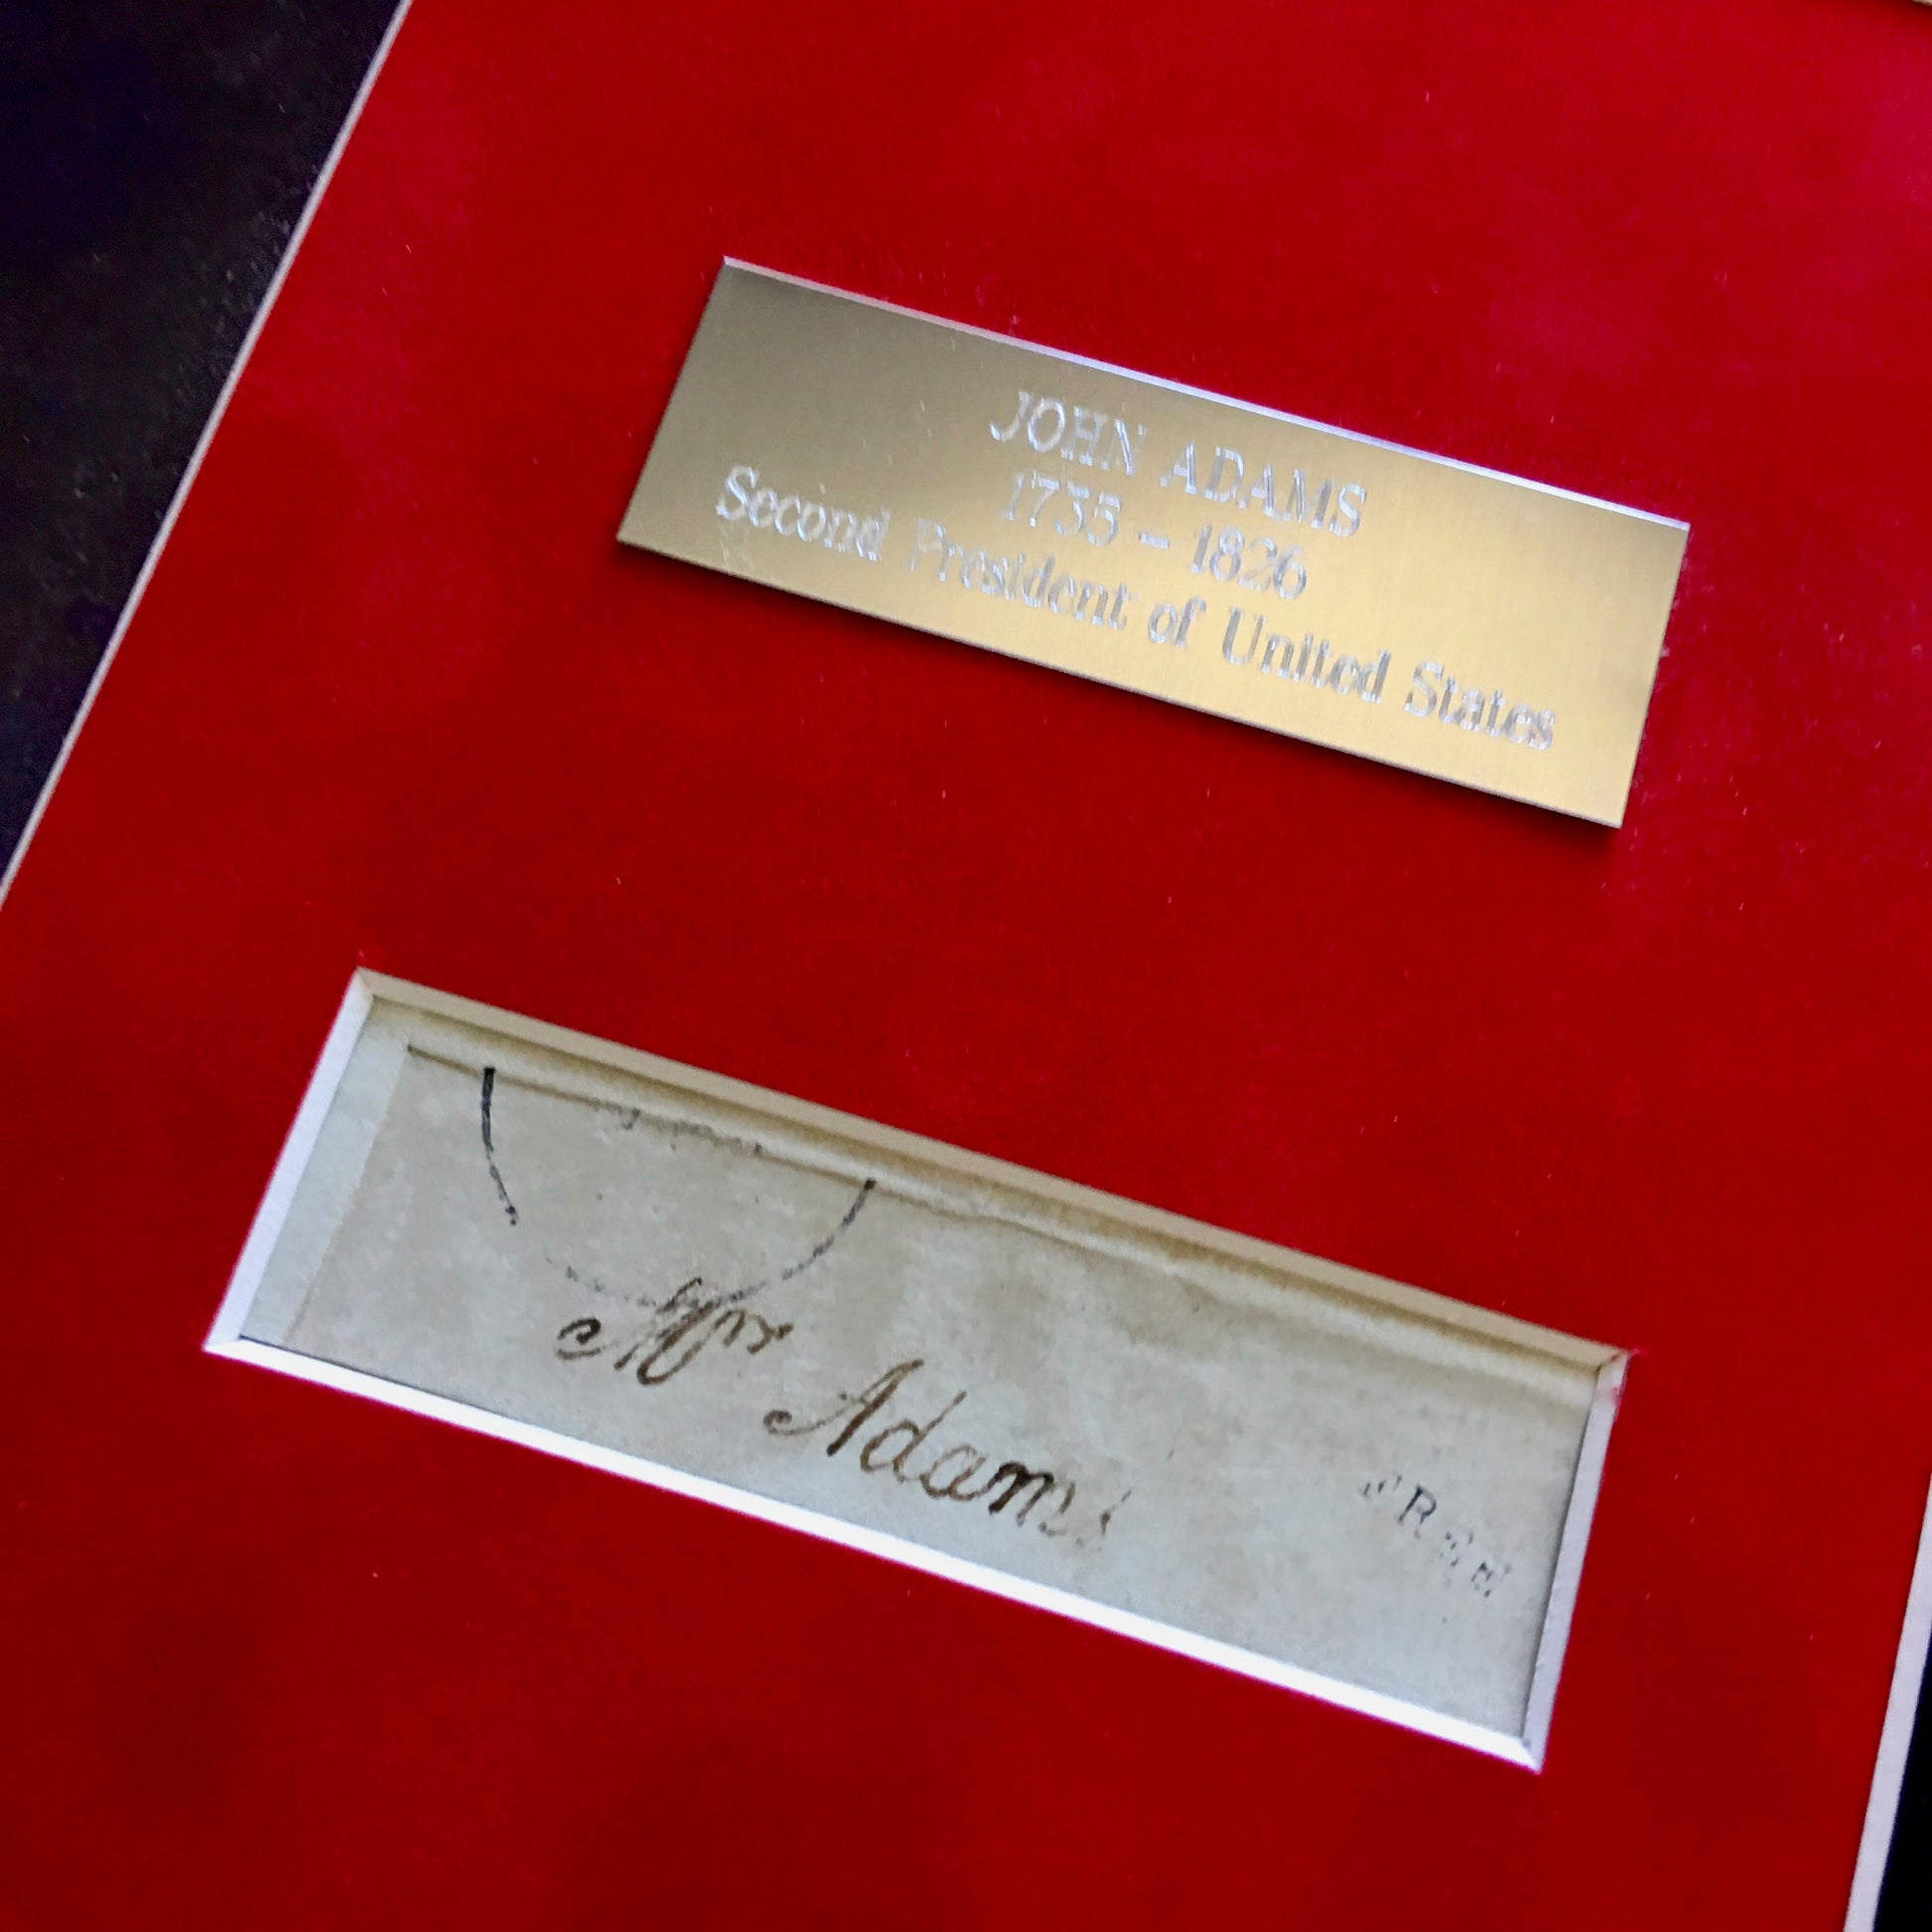 JOHN ADAMS
1735 – 1826
Second President of United States
Mr Adams
FREE